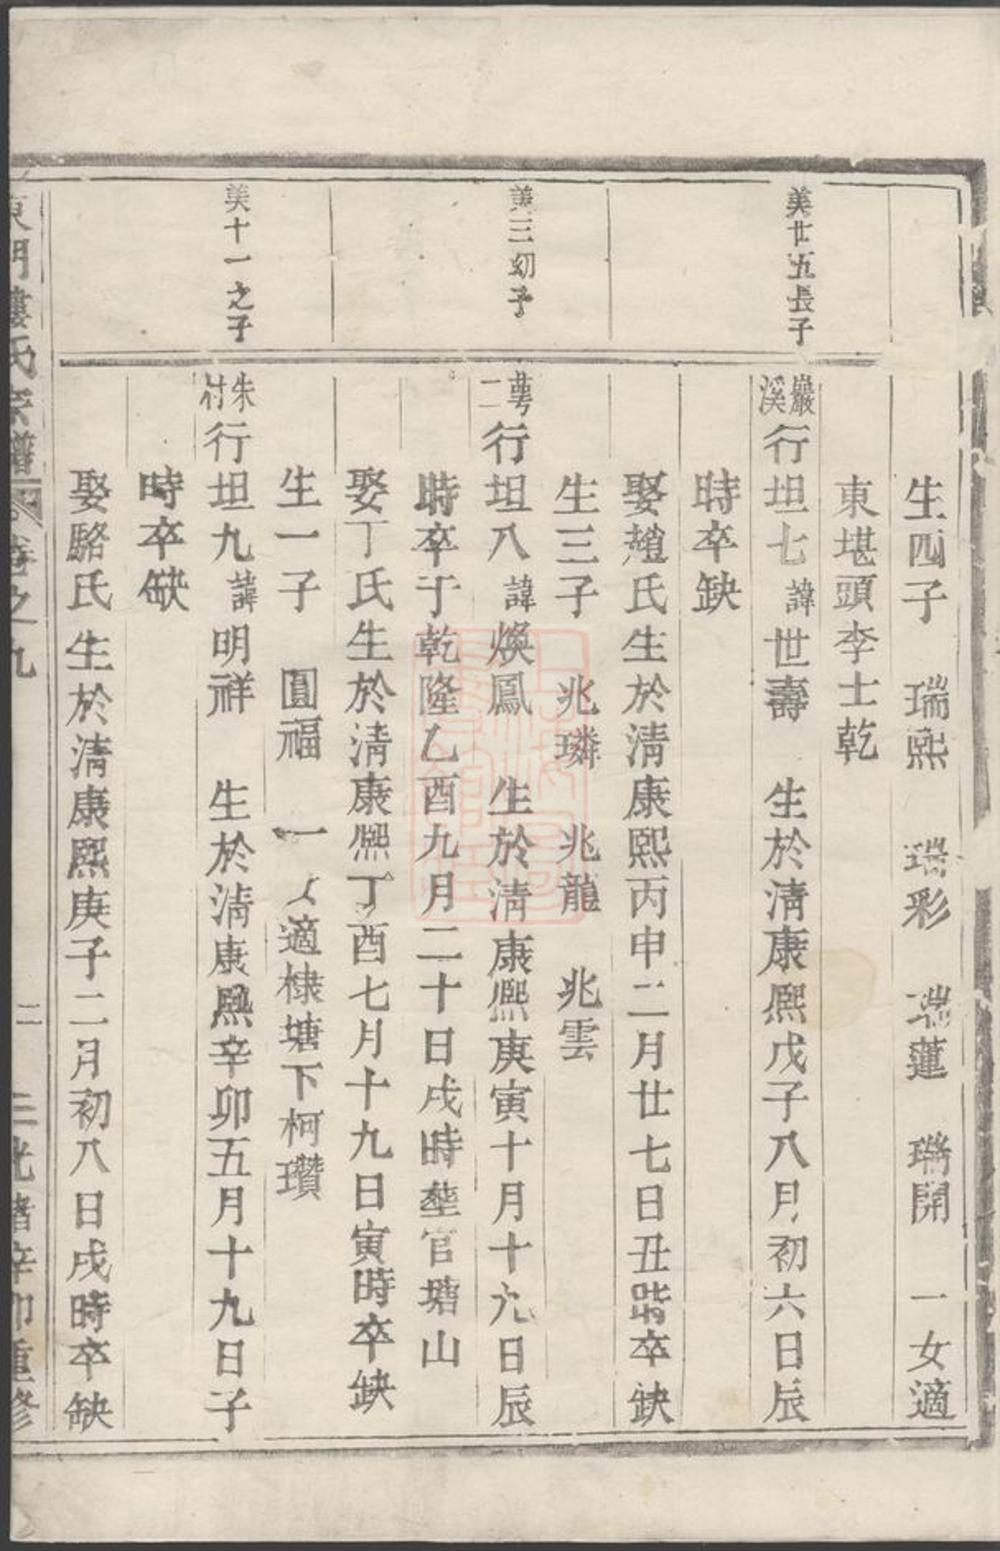 生四子　瑞熙　瑞彩　瑞蓮　瑞開　一女適
東堪頭李士乾
美廿五長子
巖溪行坦七諱世壽　生於淸康熙戊子八月初六日辰
時卒缺
娶趙氏生於淸康熙丙申二月廿七日丑時卒缺
生三子　兆璘　兆龍　兆雲
美三幼子
二行坦八諱煥鳳　生於淸康熙庚寅十月十九日辰
時卒于乾隆乙酉九月二十日戌時塟官塘山
娶丁氏生於淸康熙丁酉七月十九日寅時卒缺
生一子　圓福　一女適棣塘下柯瓚
美十一之子
朱村行坦九諱明祥　生於淸康熙辛卯五月十九日子
時卒缺
娶駱氏生於淸康熙庚子二月初八日戌時卒缺
東門婁氏宗譜　卷之九　二　光緒辛卯重修